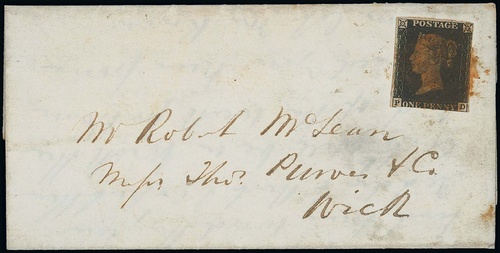 POSTAGE
ONE PENNY
P D
Mr Robet McLean
Messrs Thos. Purves & Co.
Wick